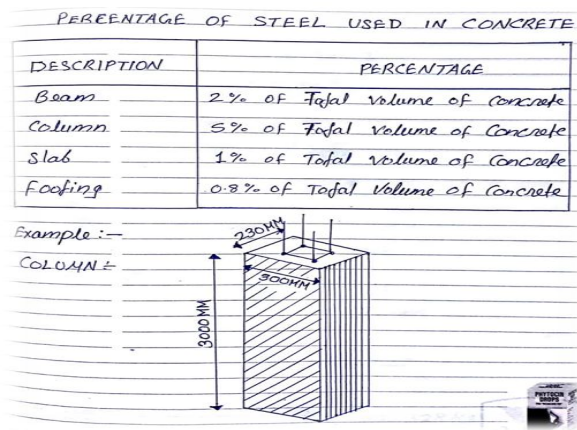 PERCENTAGE OF STEEL USED IN CONCRETE
DESCRIPTION PERCENTAGE
Beam 2% of Total volume of concrete
Column 5% of Total volume of concrete
Slab 1% of Total volume of Concrete
Footing 0.8% of Total volume of Concrete
Example :-
230MM
COLUMN :-
300MM
3000MM
PHYTOCIN
DROPS